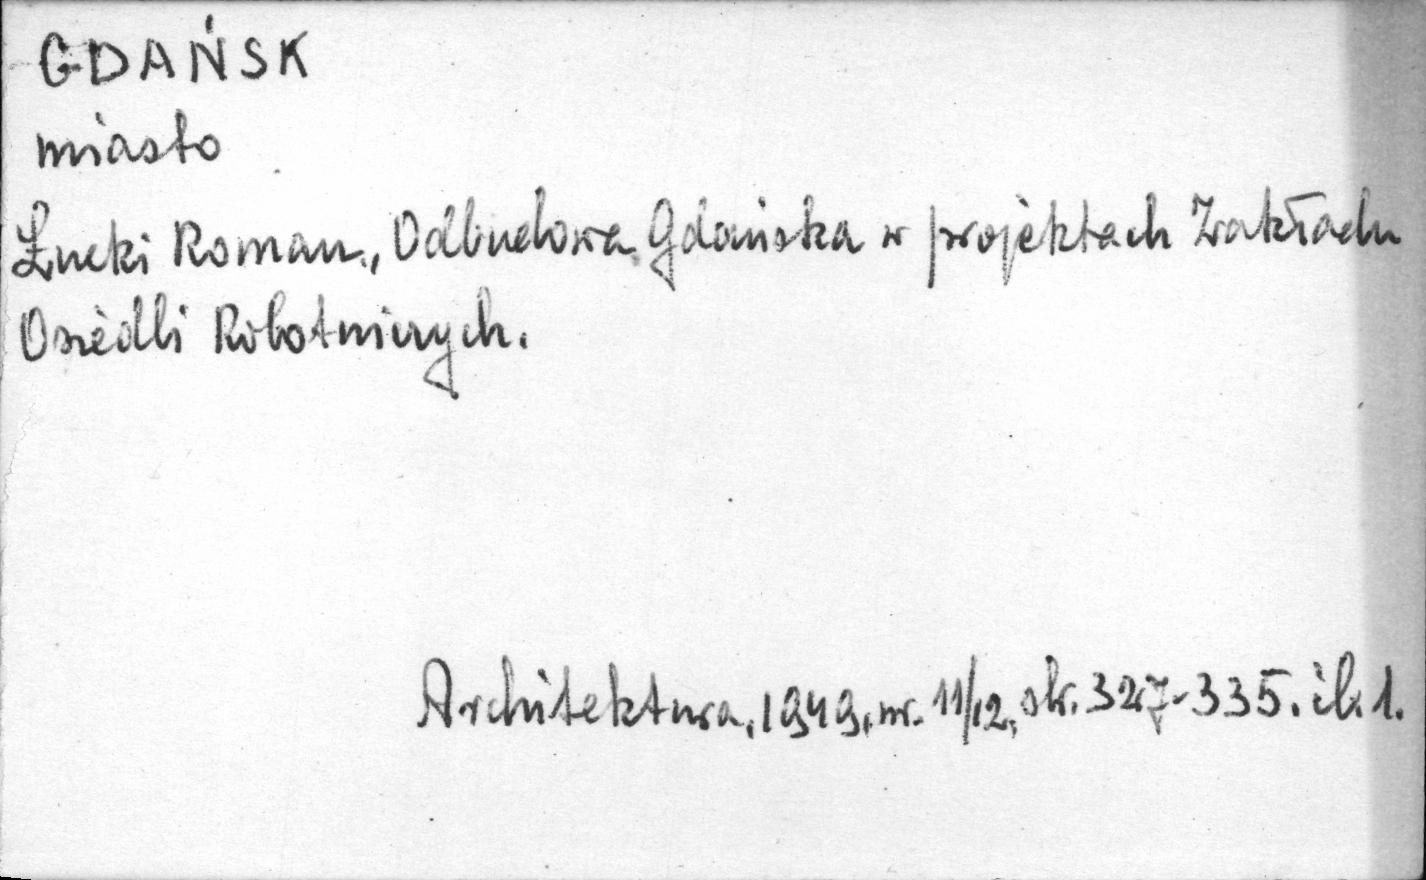 GDAŃSK
miasto
Łucki Roman., Odbudowa Gdańska w projektach Zakładu
Osiedli Robotniczych.
Architektura, 1949, nr. 11/12, str. 327-335. il. 1.